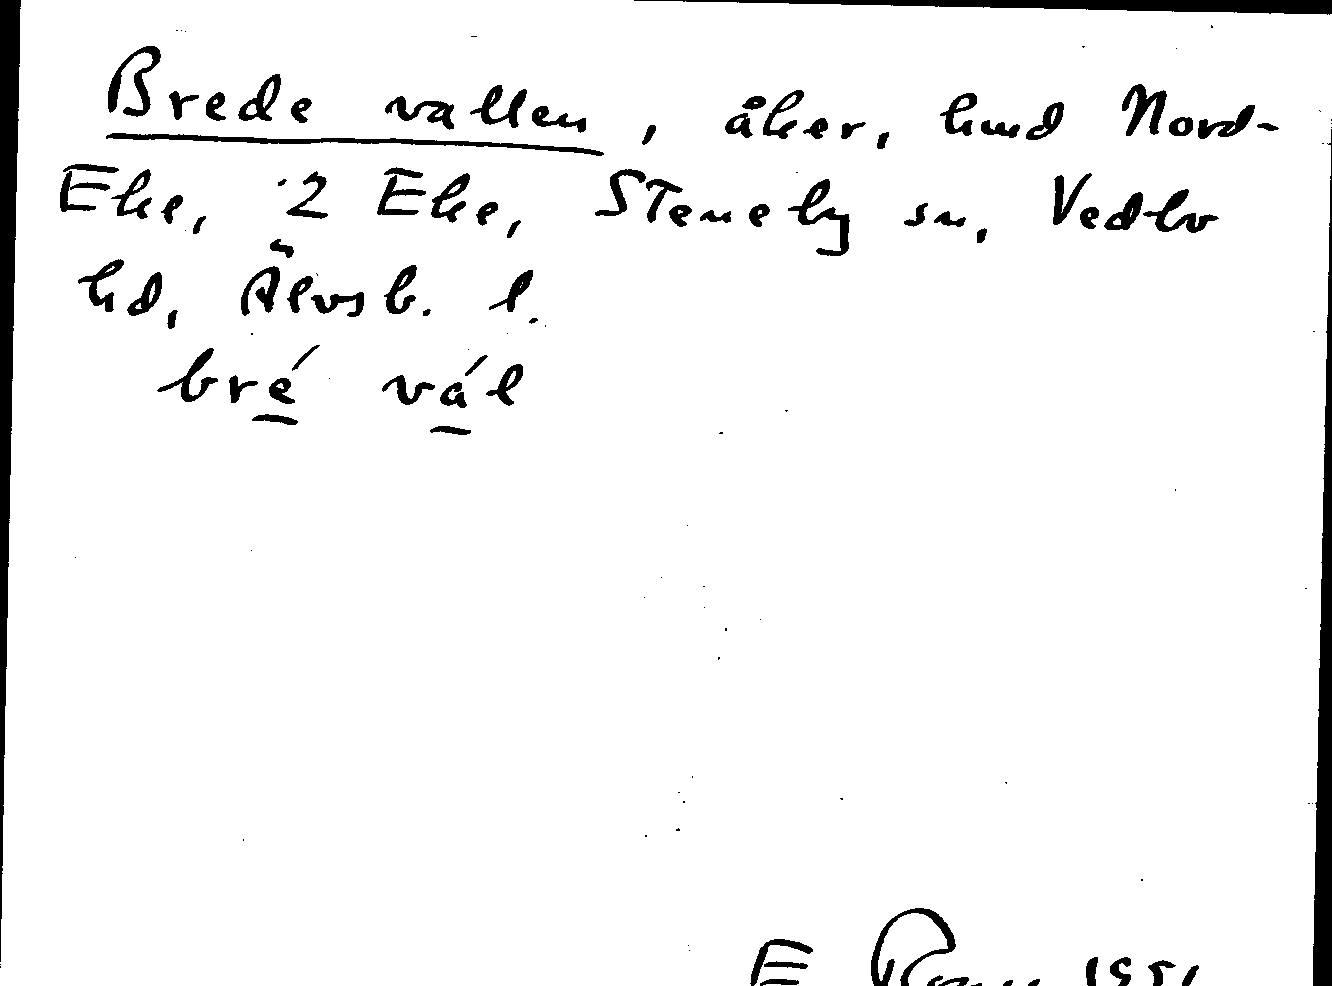 Brede vallen, åker, hmd Nord-
Eke, 2 Eke, Steneby sn, Vedbo
hd, Älvsb. l.
bré vál
E